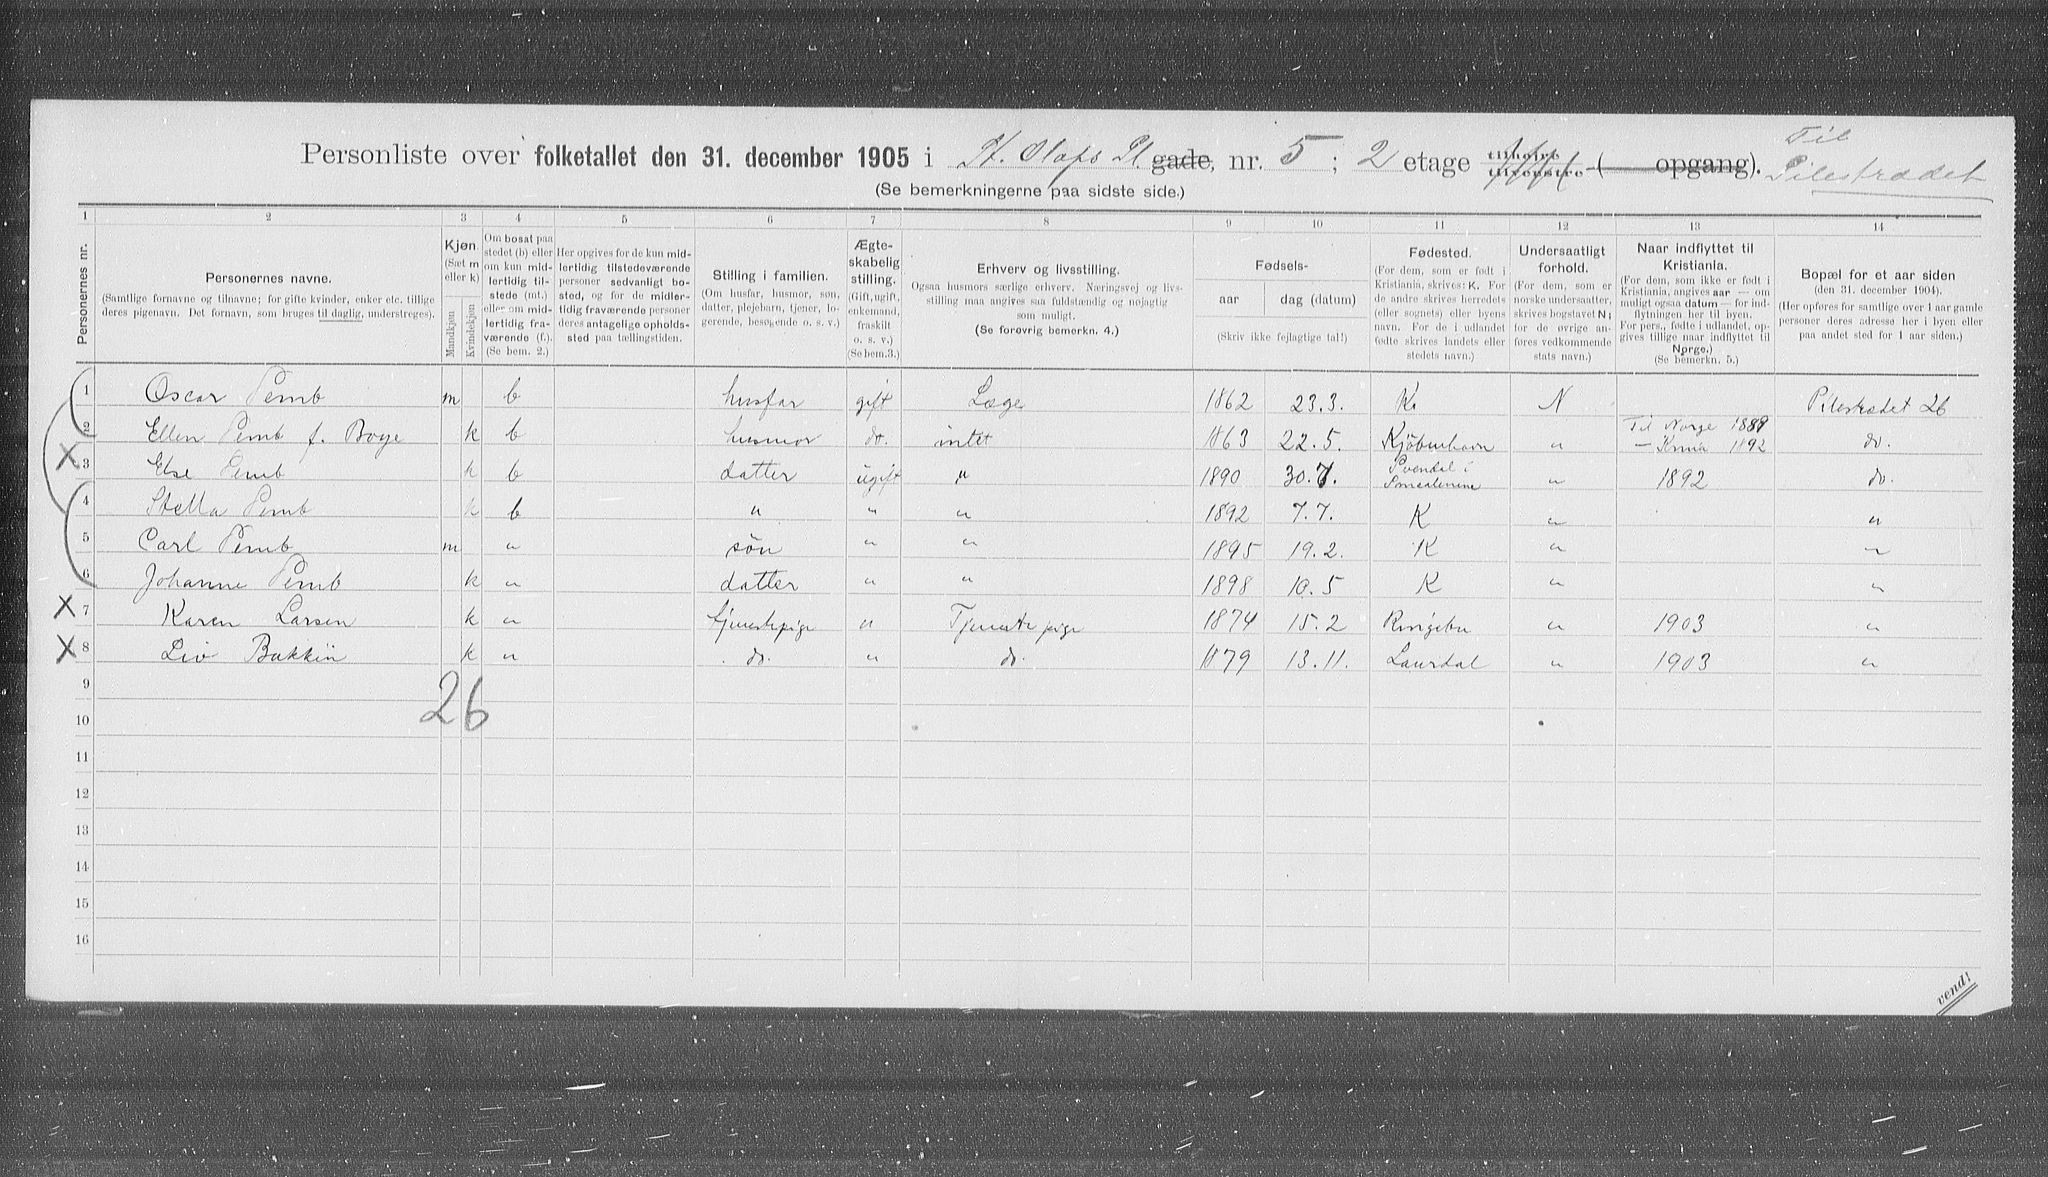 Personliste over folketallet den 31. december 1905 i St. Olafs Pl. gade, nr. 5; 2 etage tilhøire tilvenstre ( opgang). Til Pilestrædet
(Se bemerkningerne paa sidste side.)
1 2 3 4 5 6 7 8 9 10 11 12 13 14
Personernes nr.
Personernes navne.
(Samtlige fornavne og tilnavne; for gifte kvinder, enker etc. tillige deres pigenavn. Det fornavn, som bruges til daglig, understreges).
Kjøn
(Sæt m eller k)
Mandkjøn
Kvindekjøn
Om bosat paa stedet (b) eller om kun midlertidig tilstede (mt.) eller om midlertidig fraværende (f.). (Se bem. 2.)
Her opgives for de kun midlertidig tilstedeværende personer sedvanligt bosted, og for de midlertidig fraværende personer deres antagelige opholdssted paa tællingstiden.
Stilling i familien.
(Om husfar, husmor, søn, datter, plejebarn, tjener, logerende, besøgende o. s. v.)
Ægteskabelig stilling.
(Gift, ugift, enkemand, fraskilt o. s. v.) (Se bem. 3.)
Erhverv og livsstilling.
Ogsaa husmors særlige erhverv. Næringsvej og livsstilling maa angives saa fuldstændig og nøjagtig som muligt.
(Se forøvrig bemerkn. 4.)
Fødsels-
aar
dag (datum)
(Skriv ikke fejlagtige tal!)
Fødested.
(For dem, som er født i Kristiania, skrives: K. For de andre skrives herredets (eller sognets) eller byens navn. For de i udlandet fødte skrives landets eller stedets navn.)
Undersaatligt forhold.
(For dem, som er norske undersaatter, skrives bogstavet N; for de øvrige anføres vedkommende stats navn.)
Naar indflyttet til Kristiania.
(For dem, som ikke er født i Kristiania, angives aar — om muligt ogsaa datum — for indflytningen her til byen. For pers., fødte i udlandet, opgives tillige naar indflyttet til Norge.)
(Se bemerkn. 5.)
Bopæl for et aar siden
(den 31. december 1904).
(Her opføres for samtlige over 1 aar gamle personer deres adresse her i byen eller paa andet sted for 1 aar siden.)
1 Oscar m b husfar gift Læge 1862 23.3. K. N Pilestrædet 26
2 Ellen f. Boye k b husmor do. intet 1863 22.5. Kjöbenhavn " Til Norge 1889 – Krnia 1892 do.
3 Else k b datter ugift " 1890 30.7. 1892 do.
4 Stella k b " " " 1892 7.7. K " "
5 Carl m " søn " " 1895 19.2. K " "
6 Johanne k " datter " " 1898 10.5 K " "
7 Karen Larsen k " tjenestepige " Tjenestepige 1874 15.2 Ringebu " 1903 "
8 Liv Bakkin k " do. " do. 1879 13.11. Laurdal " 1903 "
26
9
10
11
12
13
14
15
16
vend!